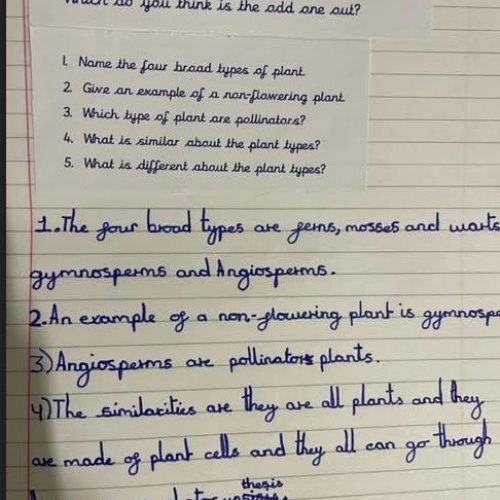 do you think is the odd one out?
1. Name the four broad types of plant.
2. Give an example of a non-flowering plant.
3. Which type of plant are pollinators?
4. What is similar about the plant types?
5. What is different about the plant types?
1. The four broad types are ferns, mosses and warts
gymnosperms and Angiosperms.
2. An example of a non-flowering plant is gymnospe
3) Angiosperms are pollinators plants.
4) The similarities are they are all plants and they
are made of plant cells and they all can go through
thesis